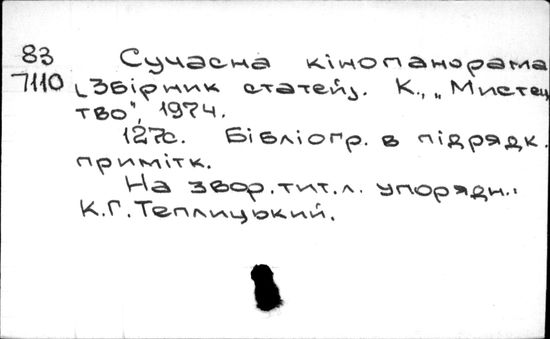 83 Сучасна кінопанорама
7110 [Збірник статей]. К., „Мистец
тво", 1974.
127с. Бібліогр. в підрядк.
примітк.
На звор. тит. л. упорядн.:
К.Г. Теплицький.